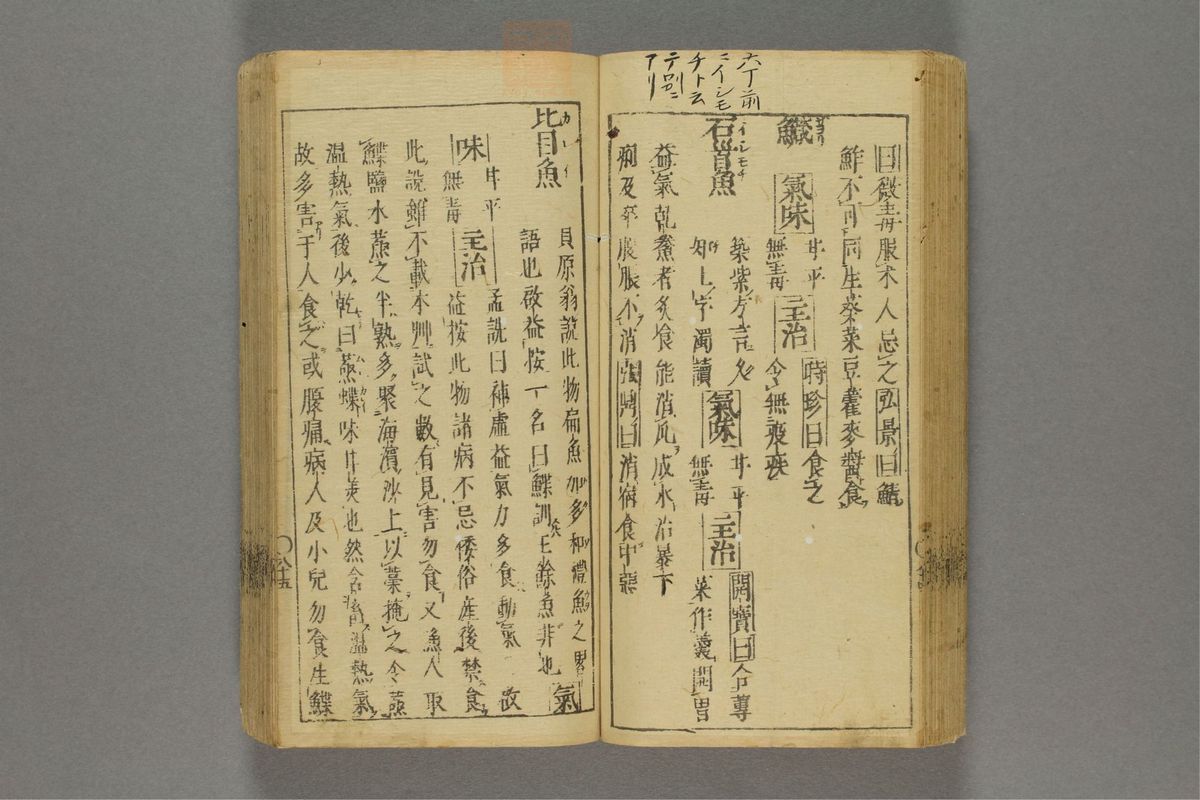 六丁前
ニイシモ
チト云
テ別ニ
アリ
日微毒服朮人忌之弘景曰鯖
鮓不可同生葵菜豆藿麥醬食
鱵
氣味 甘平無毒 主治 時珍曰食之令無疫疾
石首魚
イシモチ
築紫方言久知上字濁讀 氣味 甘平無毒 主治 開寶曰合蓴菜作羹開胃
益氣乾鯗者炙食能消瓜成水治暴下
痢及卒腹脹不消張鼎曰消宿食中惡
比目魚
カレイ
貝原翁說此物扁魚加多和禮魚之畧
語也啟益按一名曰鰈訓王餘魚非也 氣
味 甘平無毒 主治 孟詵曰補虛益氣力多食動氣 啟益按此物諸病不忌倭俗產後禁食
此說雖不載本艸試之數有見害勿食又魚人取
鰈鹽水蒸之半熟多聚海濱沙上以藁掩之令蒸
溫熱氣後少乾曰蒸鰈味甘美也然含濕溫熱氣
故多害于人食之或腹痛病人及小兒勿食生鰈
八十五